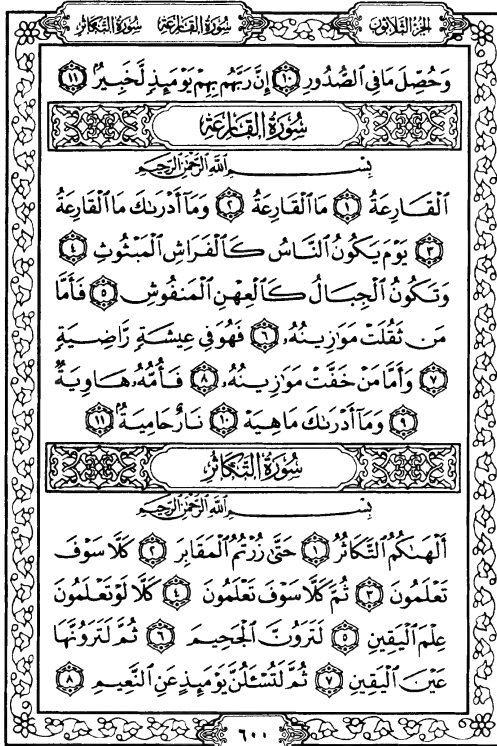 سُورَةُ القَارِعَةِ سُورَةُ التَّكَاثُرِ الجُزْءُ الثَّلَاثُونَ
وَحُصِّلَ مَا فِي ٱلصُّدُورِ ١٠ إِنَّ رَبَّهُم بِهِمْ يَوْمَئِذٍ لَّخَبِيرٌۢ ١١
سُورَةُ القَارِعَةِ
بِسْمِ ٱللَّهِ ٱلرَّحْمَٰنِ ٱلرَّحِيمِ
ٱلْقَارِعَةُ ١ مَا ٱلْقَارِعَةُ ٢ وَمَآ أَدْرَىٰكَ مَا ٱلْقَارِعَةُ
٣ يَوْمَ يَكُونُ ٱلنَّاسُ كَٱلْفَرَاشِ ٱلْمَبْثُوثِ ٤
وَتَكُونُ ٱلْجِبَالُ كَٱلْعِهْنِ ٱلْمَنفُوشِ ٥ فَأَمَّا
مَن ثَقُلَتْ مَوَٰزِينُهُۥ ٦ فَهُوَ فِى عِيشَةٍ رَّاضِيَةٍ
٧ وَأَمَّا مَنْ خَفَّتْ مَوَٰزِينُهُۥ ٨ فَأُمُّهُۥ هَاوِيَةٌ
٩ وَمَآ أَدْرَىٰكَ مَا هِيَهْ ١٠ نَارٌ حَامِيَةٌۢ ١١
سُورَةُ التَّكَاثُرِ
بِسْمِ ٱللَّهِ ٱلرَّحْمَٰنِ ٱلرَّحِيمِ
أَلْهَىٰكُمُ ٱلتَّكَاثُرُ ١ حَتَّىٰ زُرْتُمُ ٱلْمَقَابِرَ ٢ كَلَّا سَوْفَ
تَعْلَمُونَ ٣ ثُمَّ كَلَّا سَوْفَ تَعْلَمُونَ ٤ كَلَّا لَوْ تَعْلَمُونَ
عِلْمَ ٱلْيَقِينِ ٥ لَتَرَوُنَّ ٱلْجَحِيمَ ٦ ثُمَّ لَتَرَوُنَّهَا
عَيْنَ ٱلْيَقِينِ ٧ ثُمَّ لَتُسْـَٔلُنَّ يَوْمَئِذٍ عَنِ ٱلنَّعِيمِ ٨
٦٠٠